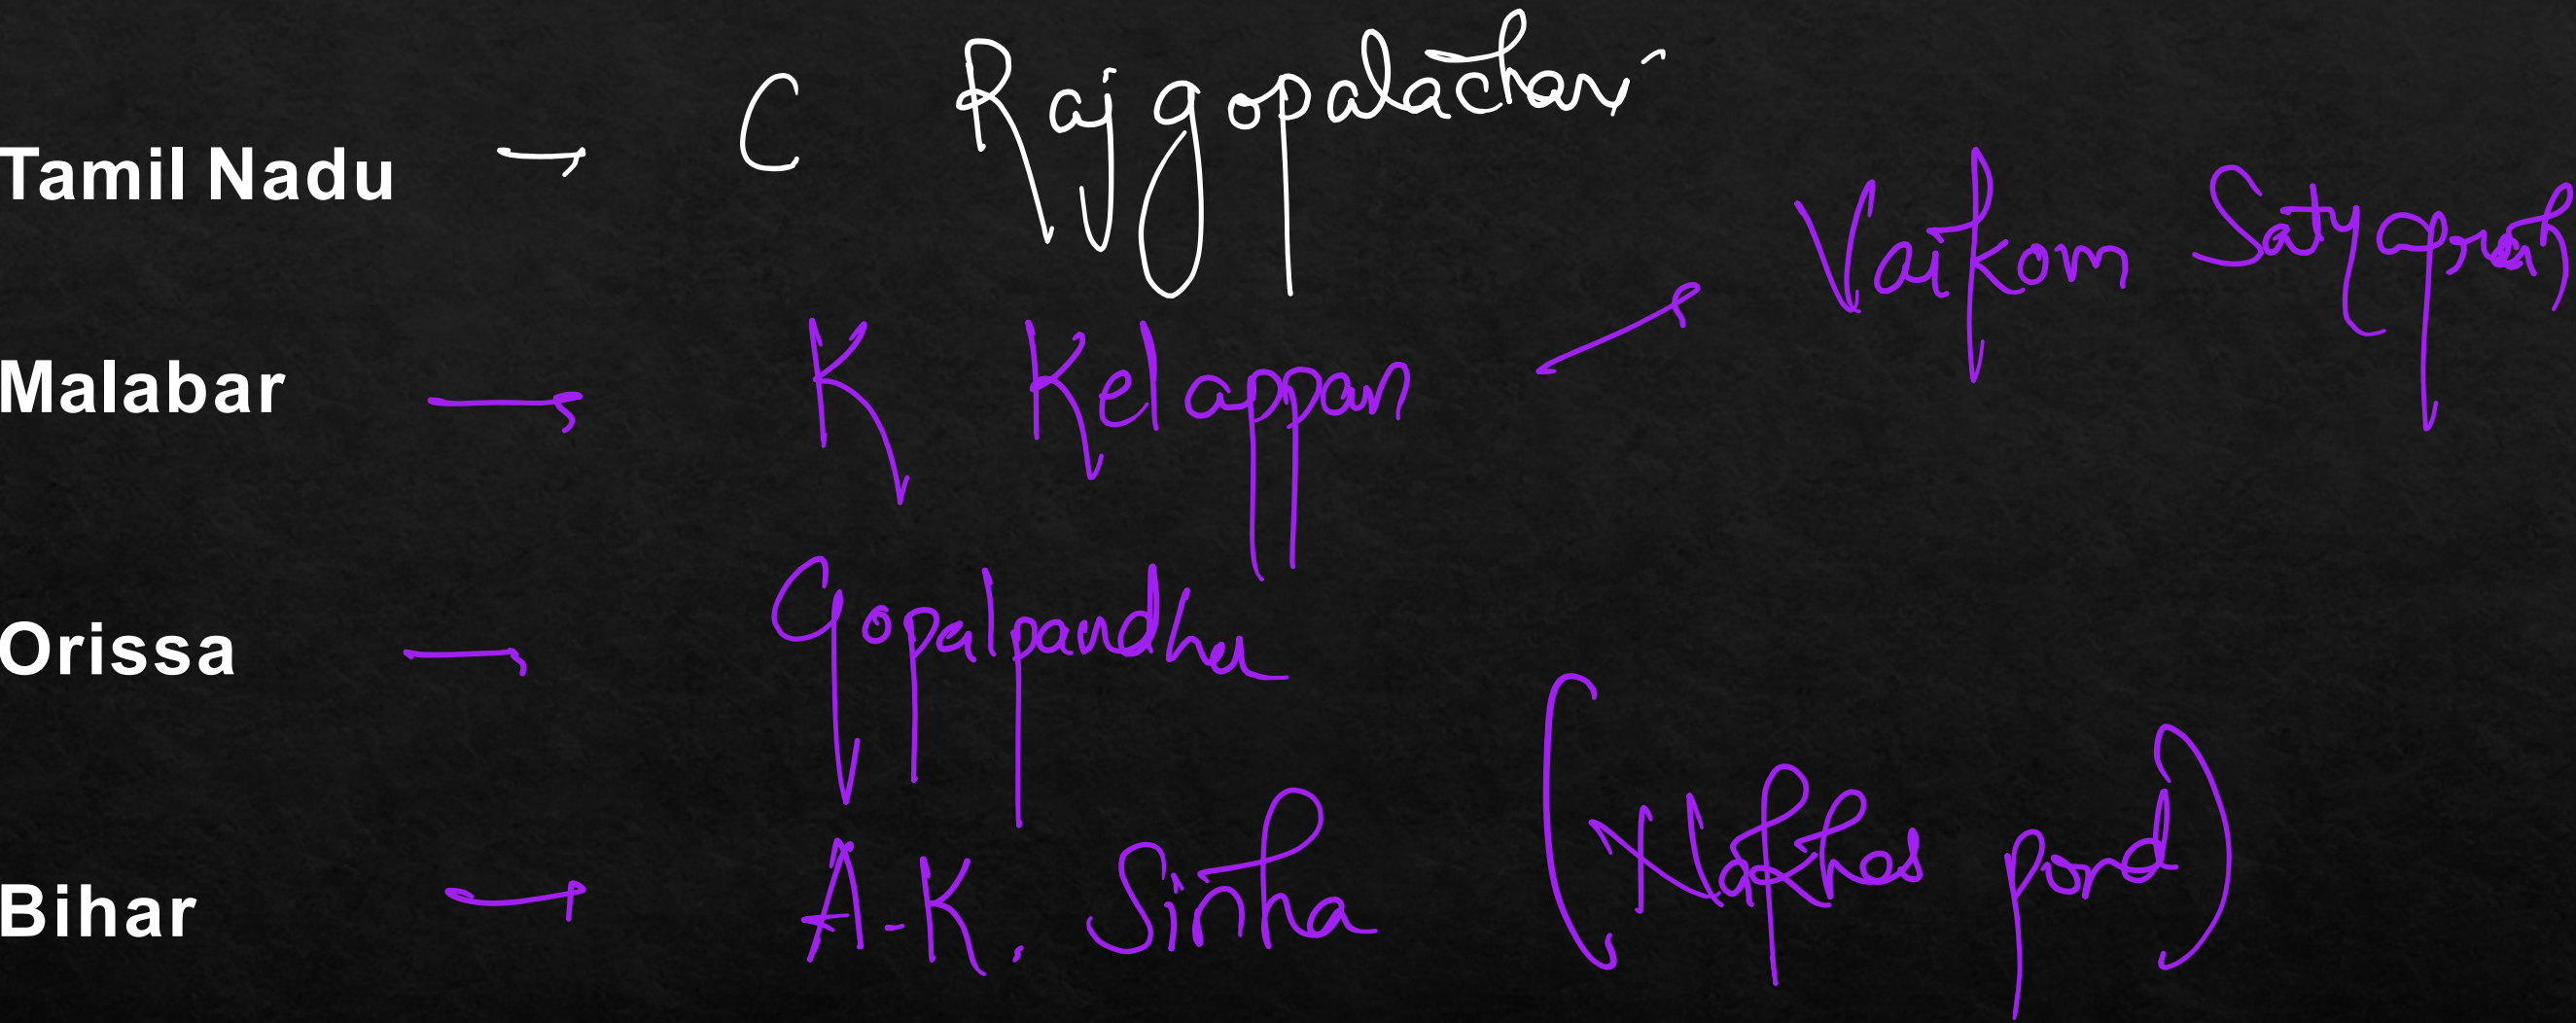 Tamil Nadu → C Rajgopalachari
Malabar → K Kelappan → Vaikom Satyagrah
Orissa → Gopalpandhu
Bihar → A-K. Sinha (Nakhas pond)